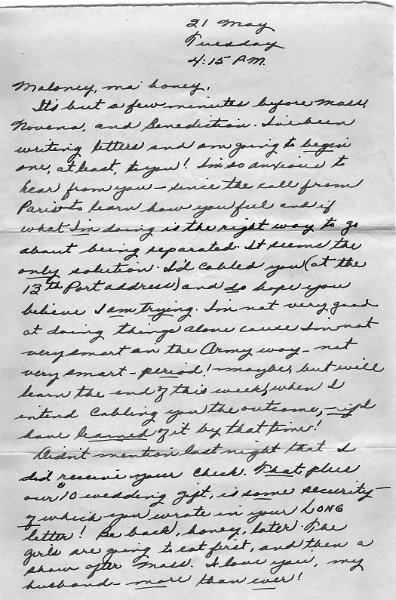 21 May
Tuesday
4:15 P.M.
Maloney, ma honey,
Its but a few minutes before Mass,
Novena, and Benediction. I've been
writing letters and am going to begin
one, at least, to you! I'm so anxious to
hear from you - since the call from
Paris to learn how you feel and if
what I'm doing is the right way to go
about being separated. It seems the
only solution. I'd cabled you (at the
13th Port address) and do hope you
believe I am trying. I'm not very good
at doing things alone cause I'm not
very smart on the Army way - not
very smart - period! maybe, but will
learn the end of this week, when I
intend cabling you the outcome, - if I
have learned of it by that time!
Didn't mention last night that I
did receive your check. That plus
our 10 wedding gift, is some security -
of which you wrote in your LONG
letter! Be back, honey, later. The
girls are going to eat first, and then a
show after Mass. I love you, my
husband - more than ever!